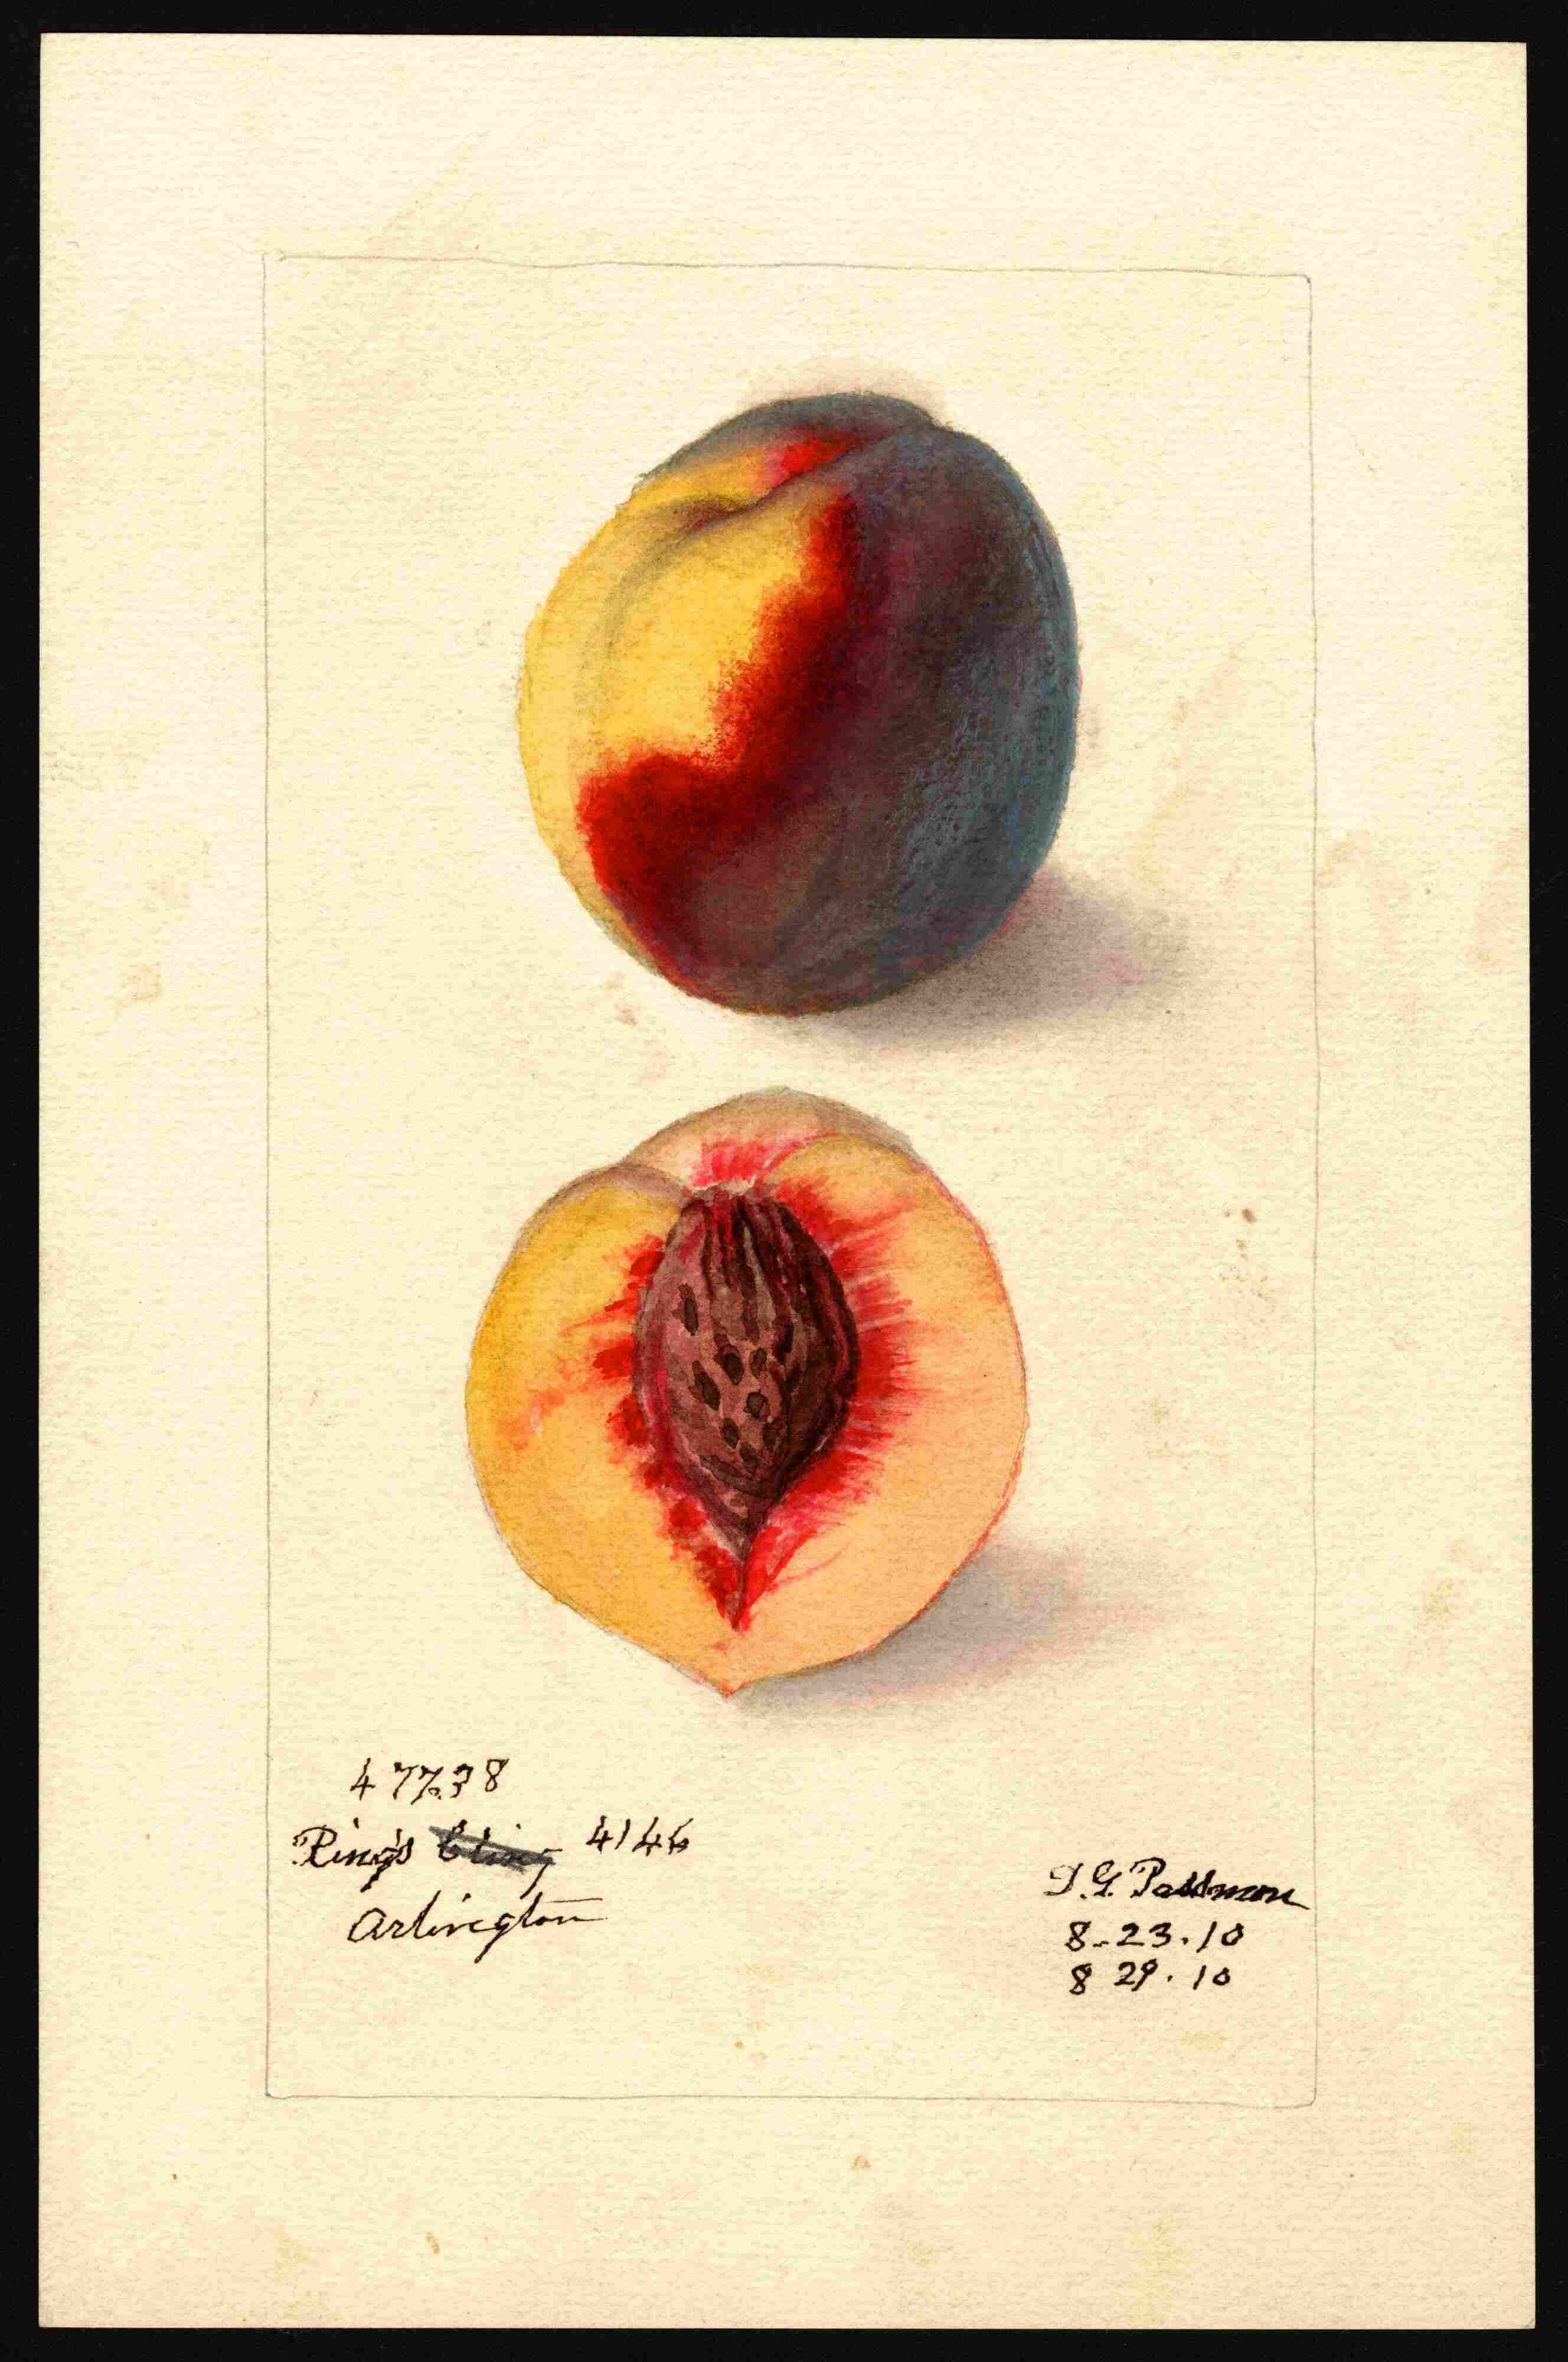 47738
Ring's Cling 4146
Arlington
D.G. Passmore
8-23.10
8 29.10